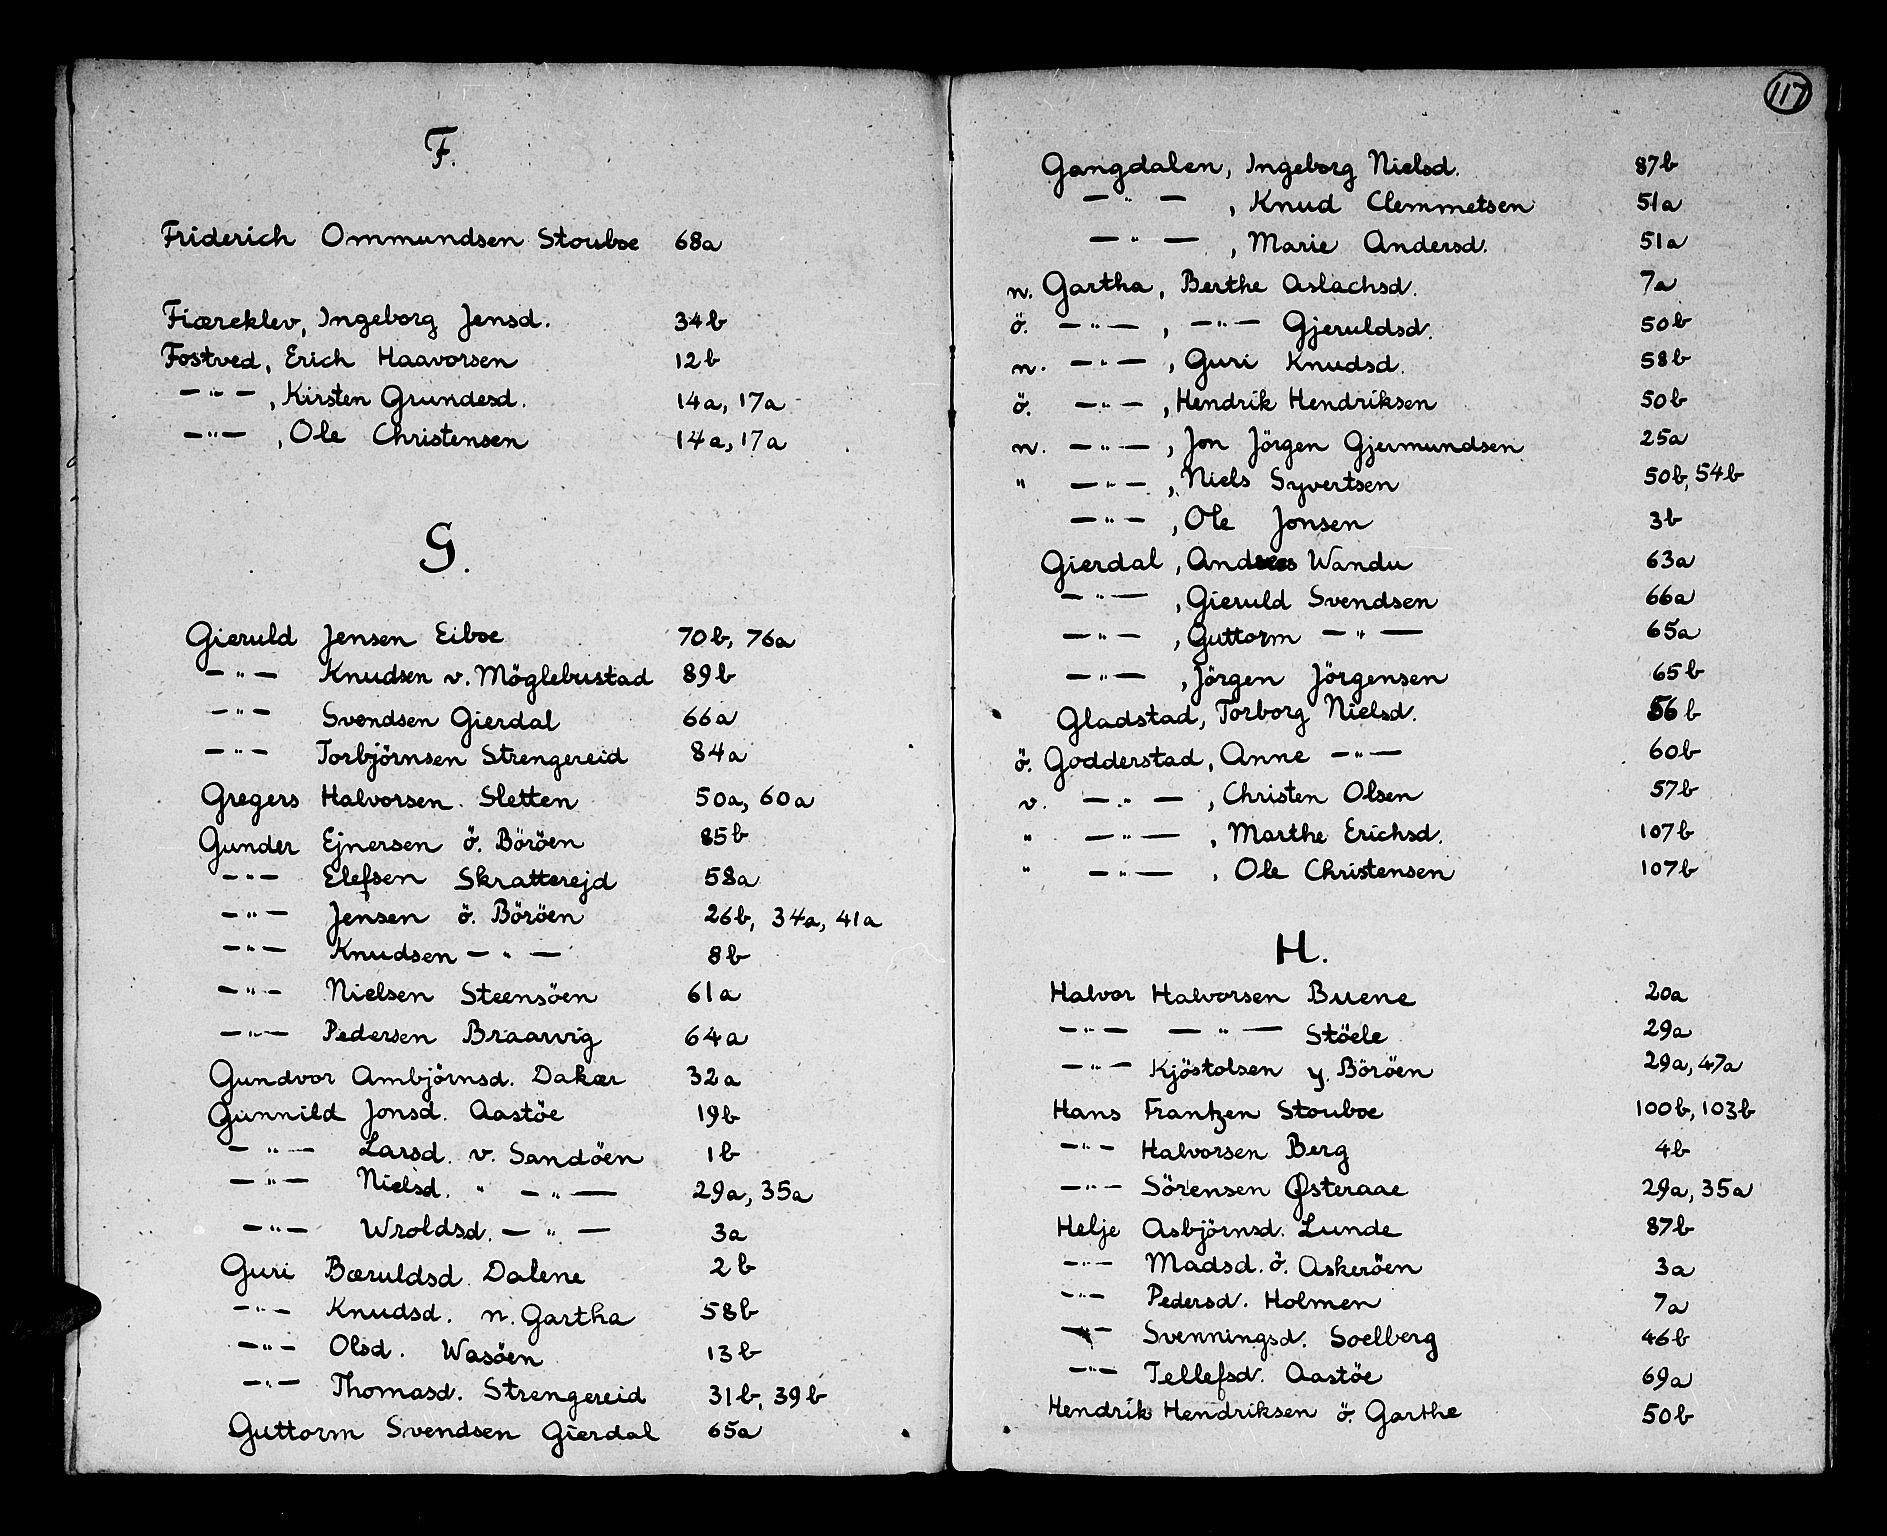 F.
Friderich Ommundsen Stouboe 68a
Fiæreklev, Ingeborg Jensd. 34b
Fostved, Erich Haavorsen 12b
— " — , Kirsten Grundesd. 14a, 17a
— " — , Ole Christensen 14a, 17a
G.
Gieruld Jensen Eiboe 70b, 76a
— " — Knudsen v. Möglebustad 89b
— " — Svendsen Gierdal 66a
— " — Torbjörnsen Strengereid 84a
Gregers Halvorsen Sletten 50a, 60a
Gunder Ejnersen ö. Böröen 85b
— " — Elefsen Skratterejd 58a
— " — Jensen ö. Böröen 26b, 34a, 41a
— " — Knudsen — " — 8b
— " — Nielsen Steensöen 61a
— " — Pedersen Braarvig 64a
Gundvor Ambjörnsd. Dakær 32a
Gunnild Jonsd. Aastöe 19b
— " — Larsd. v. Sandöen 1b
— " — Nielsd. " — " — 29a, 35a
— " — Wroldsd. — " — 3a
Guri Bæruldsd. Dalene 2b
— " — Knudsd. n. Gartha 58b
— " — Olsd. Wasöen 13b
— " — Thomasd. Strengereid 31b, 39b
Guttorm Svendsen Gierdal 65a
117
Gangdalen, Ingeborg Nielsd. 87b
— " — , Knud Clemmetsen 51a
— " — , Marie Andersd. 51a
n. Gartha, Berthe Aslachsd. 7a
ö. — " — , — " — Gjeruldsd. 50b
n. — " — , Guri Knudsd. 58b
ö. — " — , Hendrik Hendriksen 50b
n. — " — , Jon Jörgen Gjermundsen 25a
" — " — , Niels Syvertsen 50b, 54b
— " — , Ole Jonsen 3b
Gierdal, Andreas Wandu 63a
— " — , Gieruld Svendsen 66a
— " — , Guttorm — " — 65a
— " — , Jörgen Jörgensen 65b
Gladstad, Torborg Nielsd. 56b
ö. Godderstad, Anne — " — 60b
v. — " — , Christen Olsen 57b
" — " — , Marthe Erichsd. 107b
" — " — , Ole Christensen 107b
H.
Halvor Halvorsen Buene 20a
— " — — " — Stöele 29a
— " — Kjöstolsen y. Böröen 29a, 47a
Hans Frantzen Stouboe 100b, 103b
— " — Halvorsen Berg 4b
— " — Sörensen Østeraae 29a, 35a
Helje Asbjörnsd. Lunde 87b
— " — Madsd. ö. Askeröen 3a
— " — Pedersd. Holmen 7a
— " — Svenningsd. Soelberg 46b
— " — Tellefsd. Aastöe 69a
Hendrik Hendriksen ö. Garthe 50b